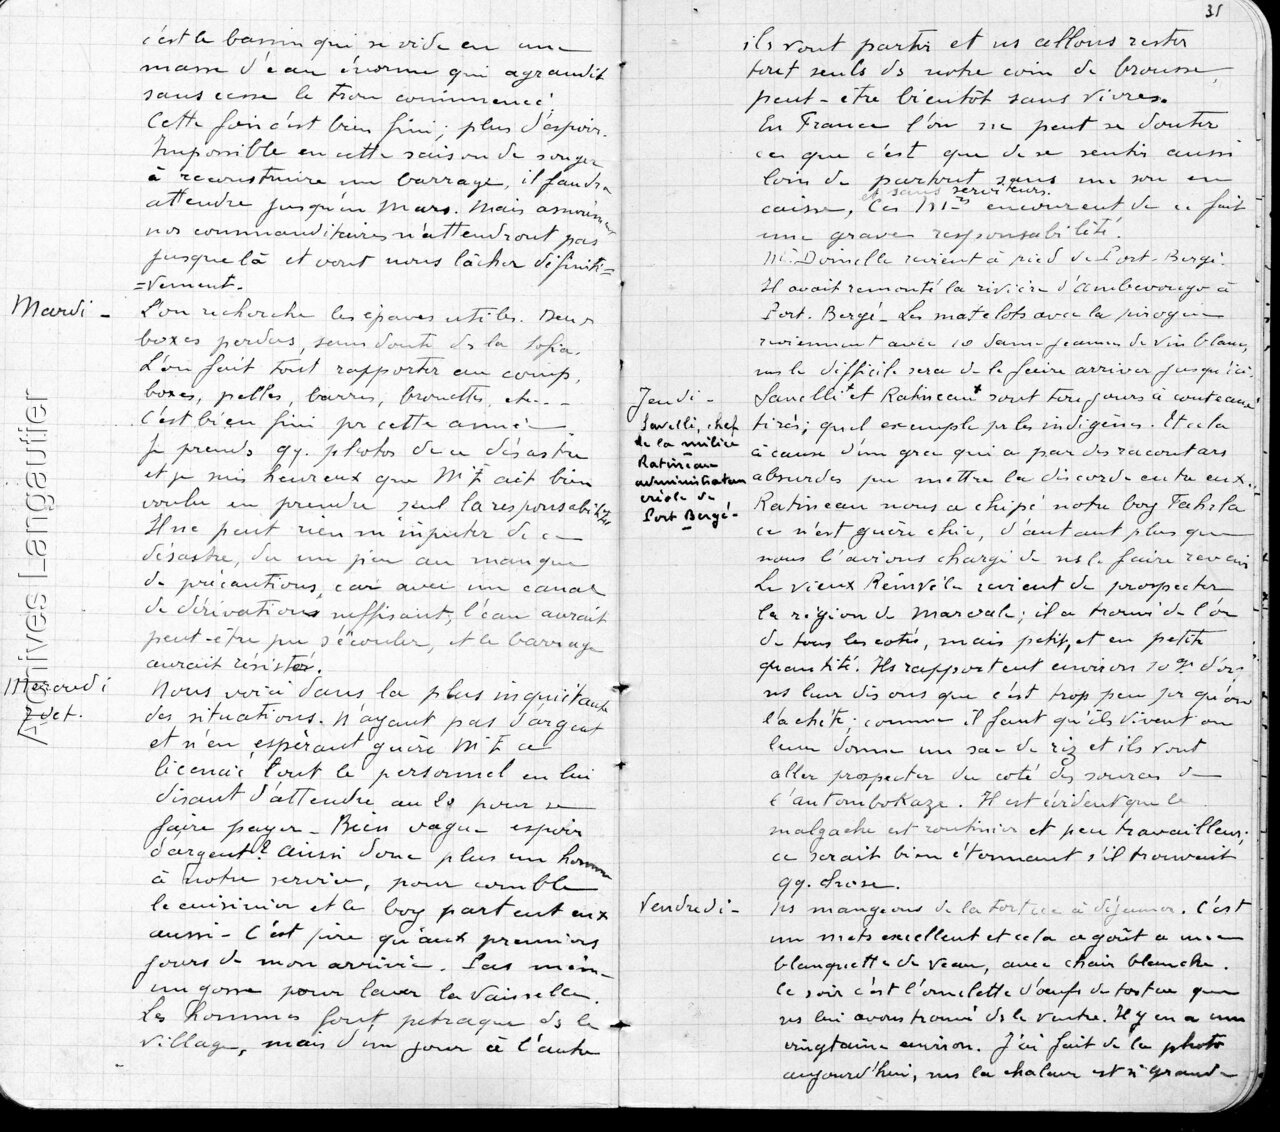 c'est le bassin qui se vide en une
masse d'eau énorme qui agrandit
sans cesse le trou commencé.
Cette fois c'est bien fini; plus d'espoir.
Impossible en cette saison de songer
à reconstruire un barrage, il faudra
attendre jusqu'en Mars. Mais
nos commanditaires n'attendront pas
jusque là et vont nous lâcher définiti=
=vement.
Mardi - L'on recherche les épaves utiles. Deux
boxes perdus, sans doute ds la Sofia.
L'on fait tout rapporter au camp,
boxes, pelles, barres, brouettes, etc...
C'est bien fini pr cette année
Je prends qq. photos de ce désastre
et je suis heureux que Mr F ait bien
voulu en prendre seul la responsabilité
Il ne peut rien m'imputer de ce
désastre, du un peu au manque
de précautions, car avec un canal
de dérivation suffisant, l'eau aurait
peut-être pu s'écouler, et le barrage
aurait résisté.
Mercredi
2 oct.
Nous voici dans la plus inquiétante
des situations. N'ayant pas d'argent
et n'en espérant guère Mr F a
licencié tout le personnel en lui
disant d'attendre au 20 pour se
faire payer - Bien vague espoir
d'argent? Aussi donc plus un homme
à notre service, pour comble
le cuisinier et le boy partent eux
aussi - C'est pire qu'aux premiers
jours de mon arrivée. Pas même
un gosse pour laver la vaisselle.
Les hommes font ds le
village, mais d'un jour à l'autre
31
ils vont partir et ns allons rester
tout seuls ds notre coin de brousse,
peut-être bientôt sans vivres.
En France l'on ne peut se douter
ce que c'est que de se sentir aussi
loin de partout sans un sou en
et sans serviteurs.
caisse, Ces Mrs encourent de ce fait
une grave responsabilité.
Mr Doinelle revient à pied de Port-Bergé.
Il avait remonté la rivière d'Ambevongo à
Port-Bergé - Les matelots avec la pirogue
reviennent avec 10 dames-jeannes de vin blanc,
ms le difficile sera de le faire arriver jusqu'ici.
Jeudi -
Savelli, chef
de la milice
Ratineau
administrateur
créole de
Port Bergé -
Savelli + et Ratineau + sont toujours à couteaux
tirés; quel exemple pr les indigènes. Et cela
à cause d'un grec qui a par des racontars
absurdes pu mettre la discorde entre eux.
Ratineau nous a chipé notre boy Fahita
ce n'est guère chic, d'autant plus que
nous l'avions chargé de ns le faire revenir
Le vieux Reinvéle revient de prospecter
la région de Marvale; il a trouvé de l'or
de tous les cotés, mais petit, et en petite
quantité. Ils rapportent environ 10 gr d'or,
ns leur disons que c'est trop peu pr qu'on
l'achète; comme il faut qu'ils vivent on
leur donne un sac de riz et ils vont
aller prospecter du coté des sources de
l'Antombokaze. Il est évident que le
malgache est routinier et peu travailleur;
ce serait bien étonnant s'il trouvait
qq. chose.
Vendredi - Ns mangeons de la tortue à déjeuner. C'est
un mets excellent et cela a goût a une
blanquette de veau, avec chair blanche.
Ce soir c'est l'omelette d'oeufs de tortue que
ns lui avons trouvé ds le ventre. Il y en a une
vingtaine environ. J'ai fait de la photo
aujourd'hui, mais la chaleur est si grande
Archives Langautier